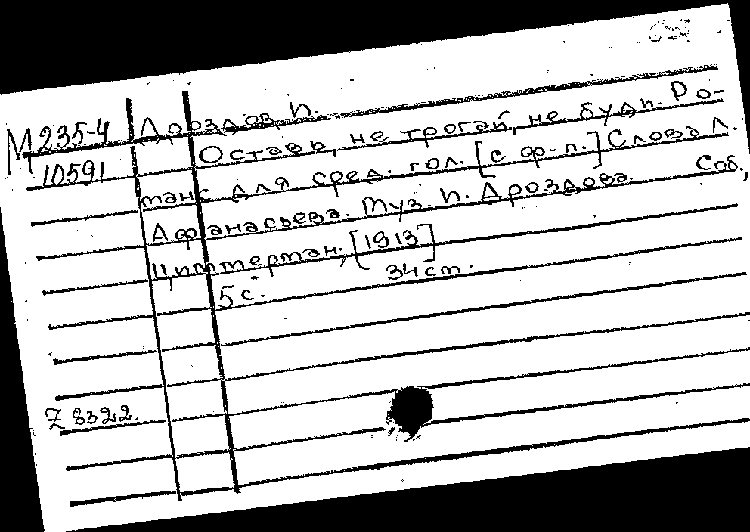 М 235-4 Дроздов, П.
10591 Оставь, не трогай, не буди. Ро-
манс для сред. гол. [с ф-п.] Слова Л.
Афанасьева. Муз. П. Дроздова. Соб.,
Циммерман, [1913]
5 с. 34 cm.
Z 8322.